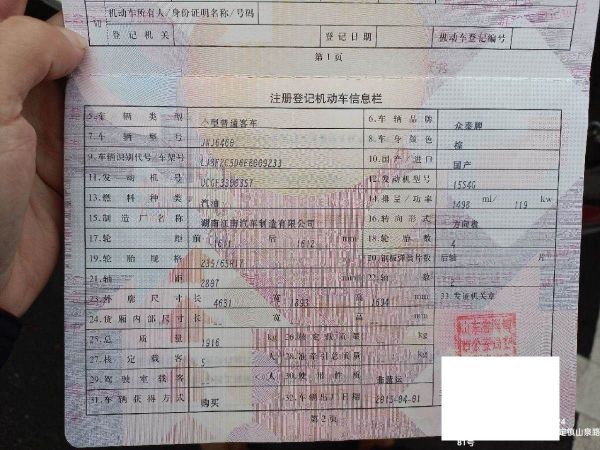 机动车所有人/身份证明名称/号码
登记机关 登记日期 机动车登记编号
第1页
注册登记机动车信息栏
5.车辆类型 小型普通客车 6.车辆品牌 众泰牌
7.车辆型号 8.车身颜色 棕
9.车辆识别代号/车架号 10.国产/进口 国产
11.发动机号 12.发动机型号 15S4G
13.燃料种类 汽油 14.排量/功率 1498 ml/ 119 kw
15.制造厂名称 湖南江南汽车制造有限公司 16.转向形式 方向盘
17.轮距 前 1611 后 1612 mm 18.轮胎数 4
19.轮胎规格 235/65R17 20.钢板弹簧片数 后轴
21.轴距 2807 mm 22.轴数 2
23.外廓尺寸 长 4631 宽 1893 高 1694 mm 33.发证机关章
24.货厢内部尺寸 长 宽 高 mm
25.总质量 1916 kg 26.核定载质量 kg
27.核定载客 5 人 28.准牵引总质量 kg
29.驾驶室载客 人 30.使用性质 非营运
31.车辆获得方式 购买 32.车辆出厂日期 2015-04-01
第2页
定镇山泉路
81号